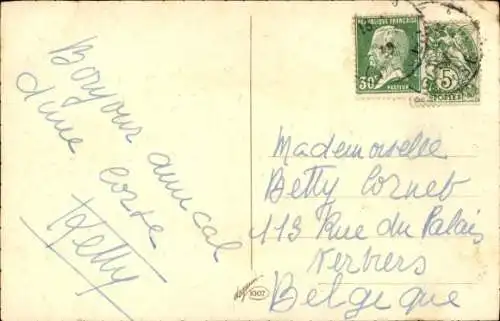 Bonjour amical
d'une coste
Ketty
REPUBLIQUE FRANÇAISE
30c
PASTEUR
5
POSTES
Mademoiselle
Betty Cornet
113 Rue du Palais
Verviers
Belgique
1007